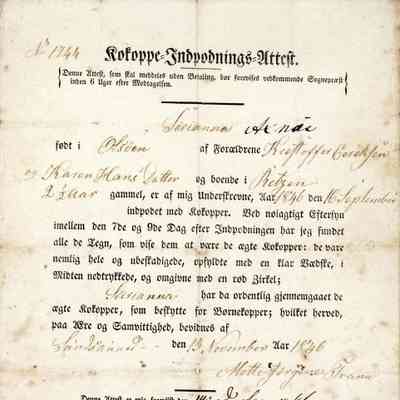 No 1744
Kokoppe-Indpodnings-Attest.
(Denne Attest, som skal meddeles uden Betaling, bør forevises vedkommende Sognepræst
inden 6 Uger efter Modtagelsen.
Sirianna
født i Olsøen af Forældrene Kristoffer Eriksen
og Karen Hans Datter og boende i
2 Aar gammel, er af mig Underskrevne, Aar 1846 den 16 September
indpodet med Kokopper. Ved nøiagtigt Eftersyn
imellem den 7de og 9de Dag efter Indpodningen har jeg fundet
alle de Tegn, som vise dem at være de ægte Kokopper: de vare
nemlig hele og ubeskadigede, opfyldte med en klar Vædske, i
Midten nedtrykkede, og omgivne med en rød Zirkel;
Sirianna har da ordentlig gjennemgaaet de
ægte Kokopper, som beskytte for Børnekopper; hvilket herved,
paa Ære og Samvittighed, bevidnes af
den 13 November Aar 1846
Mette
Denne Attest er mig forevist den